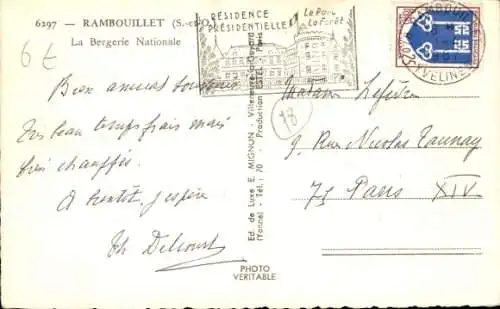 6297 - RAMBOUILLET (S.-et-O.)
La Bergerie Nationale
6 £
RÉSIDENCE
PRÉSIDENTIELLE
Le Parc
La Forêt
YVELINES
0,25
18
Bien amical souvenir
Très beau temps frais mais
bien chauffés.
A bientôt j'espère
Th Delcourt
Ed. de Luxe E. MIGNON - Villeneuve-la-Guyard
(Yonne) - Tél. 70 - Production ESTEL - Paris
Madame Lefèvre
9, Rue Nicolas Taunay
75 Paris XIV
PHOTO
VERITABLE